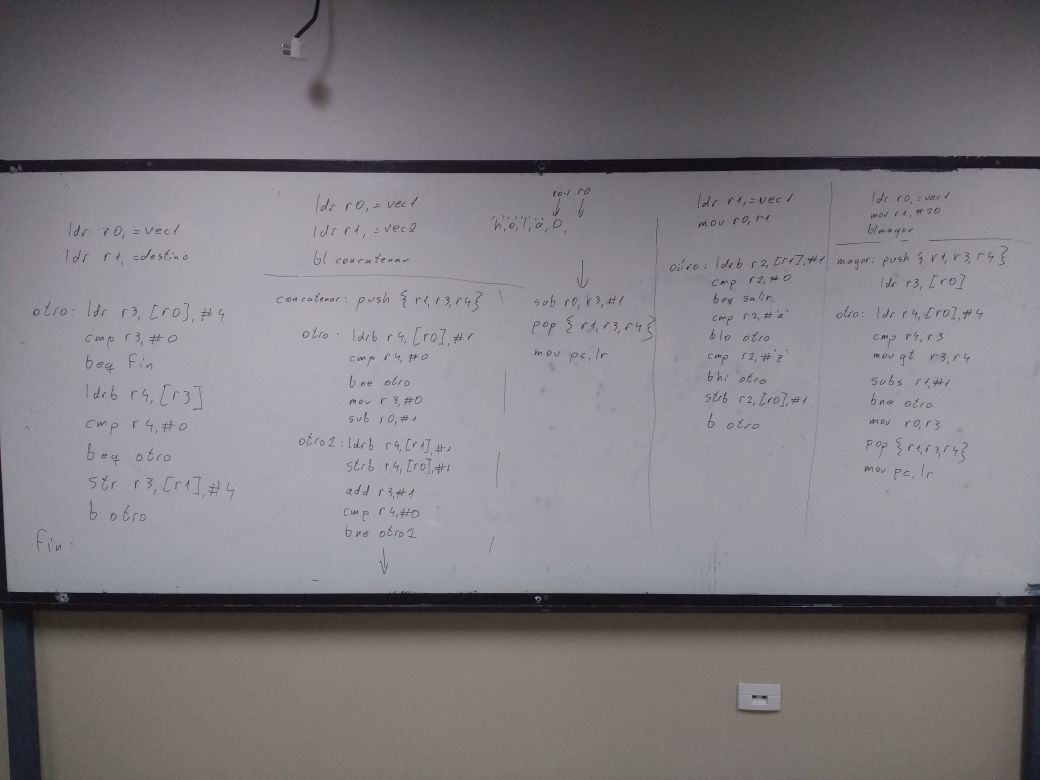 ldr r0,=vec1
ldr r1,=destino
otro: ldr r3,[r0],#4
cmp r3,#0
beq fin
ldrb r4,[r3]
cmp r4,#0
beq otro
str r3,[r1],#4
b otro
fin:
ldr r0,=vec1
ldr r1,=vec2
bl concatenar
concatenar: push {r1,r3,r4}
otro: ldrb r4,[r0],#1
cmp r4,#0
bne otro
mov r3,#0
sub r0,#1
otro2: ldrb r4,[r1],#1
strb r4,[r0],#1
add r3,#1
cmp r4,#0
bne otro2
↓
r0-1 r0
↓ ↓
'h','o','l','a',0,
↓
sub r0,r3,#1
pop {r1,r3,r4}
mov pc,lr
ldr r1,=vec1
mov r0,r1
otro: ldrb r2,[r1],#1
cmp r2,#0
beq salir
cmp r2,#'a'
blo otro
cmp r2,#'z'
bhi otro
strb r2,[r0],#1
b otro
ldr r0,=vec1
mov r1,#20
bl mayor
mayor: push {r1,r3,r4}
ldr r3,[r0]
otro: ldr r4,[r0],#4
cmp r4,r3
movgt r3,r4
subs r1,#1
bne otro
mov r0,r3
pop {r1,r3,r4}
mov pc,lr